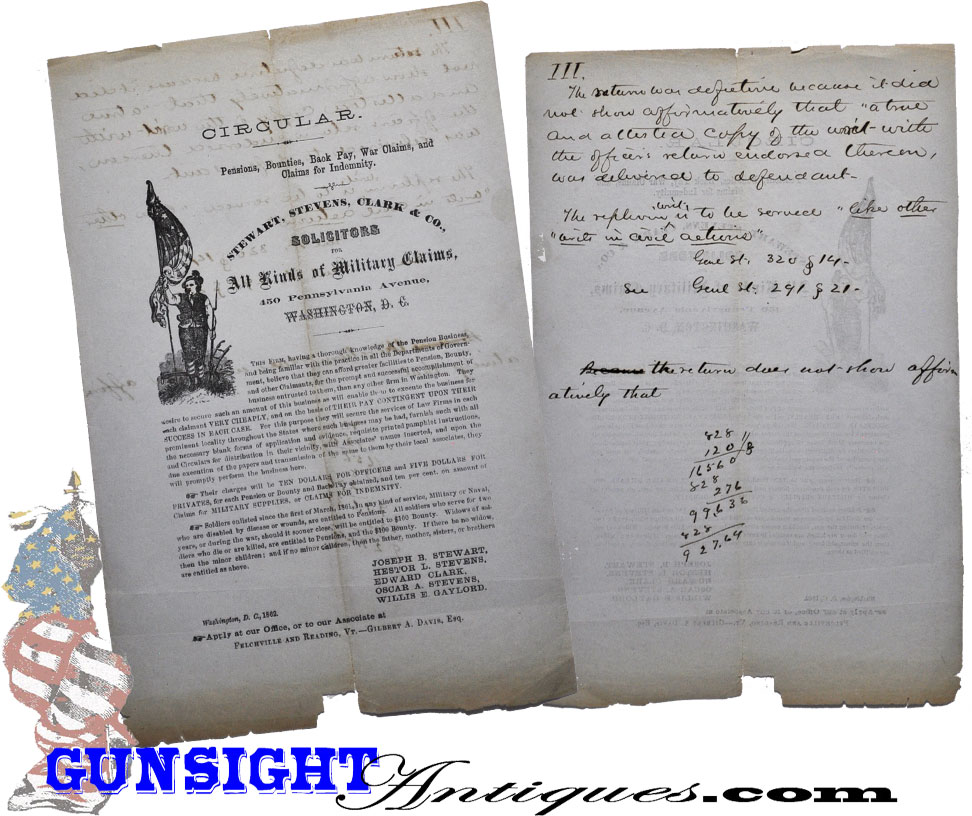 CIRCULAR.
Pensions, Bounties, Back Pay, War Claims, and
Claims for Indemnity.
STEWART, STEVENS, CLARK & CO.,
SOLICITORS
FOR
All Kinds of Military Claims,
450 Pennsylvania Avenue,
WASHINGTON, D. C.
THIS FIRM, having a thorough knowledge of the Pension Business,
and being familiar with the practice in all the Departments of Govern-
ment, believe that they can afford greater facilities to Pension, Bounty,
and other Claimants, for the prompt and successful accomplishment of
business entrusted to them, than any other firm in Washington. They
desire to secure such an amount of this business as will enable them to execute the business for
each claimant VERY CHEAPLY, and on the basis of THEIR PAY CONTINGENT UPON THEIR
SUCCESS IN EACH CASE. For this purpose they will secure the services of Law Firms in each
prominent locality throughout the States where such business may be had, furnish such with all
the necessary blank forms of application and evidence, requisite printed pamphlet instructions,
and Circulars for distribution in their vicinity, with Associates' names inserted, and upon the
due execution of the papers and transmission of the same to them by their local associates, they
will promptly perform the business here.
Their charges will be TEN DOLLARS FOR OFFICERS and FIVE DOLLARS FOR
PRIVATES, for each Pension or Bounty and Back Pay obtained, and ten per cent. on amount of
Claims for MILITARY SUPPLIES, or CLAIMS FOR INDEMNITY.
Soldiers enlisted since the first of March, 1861, in any kind of service, Military or Naval,
who are disabled by disease or wounds, are entitled to Pensions. All soldiers who serve for two
years, or during the war, should it sooner close, will be entitled to $100 Bounty. Widows of sol-
diers who die or are killed, are entitled to Pensions, and the $100 Bounty. If there be no widow,
then the minor children; and if no minor children, then the father, mother, sisters, or brothers
are entitled as above.
JOSEPH B. STEWART,
HESTOR L. STEVENS,
EDWARD CLARK,
OSCAR A. STEVENS,
WILLIS E. GAYLORD.
Washington, D. C., 1862.
Apply at our Office, or to our Associate at
FELCHVILLE AND READING, VT.—GILBERT A. DAVIS, ESQ.
III.
The return was defective because it did
not show affirmatively that "a true
and attested copy of the writ with
the officer's return endorsed thereon,
was delivered to defendant—
The replevin writ is to be served "like other
"writs in civil actions"
Genl St. 320 § 14—
See Genl St. 291 § 21—
Because the return does not show affirm
atively that
828
120
16560
828
276
99636
828
927.64
GUNSIGHT
Antiques.com